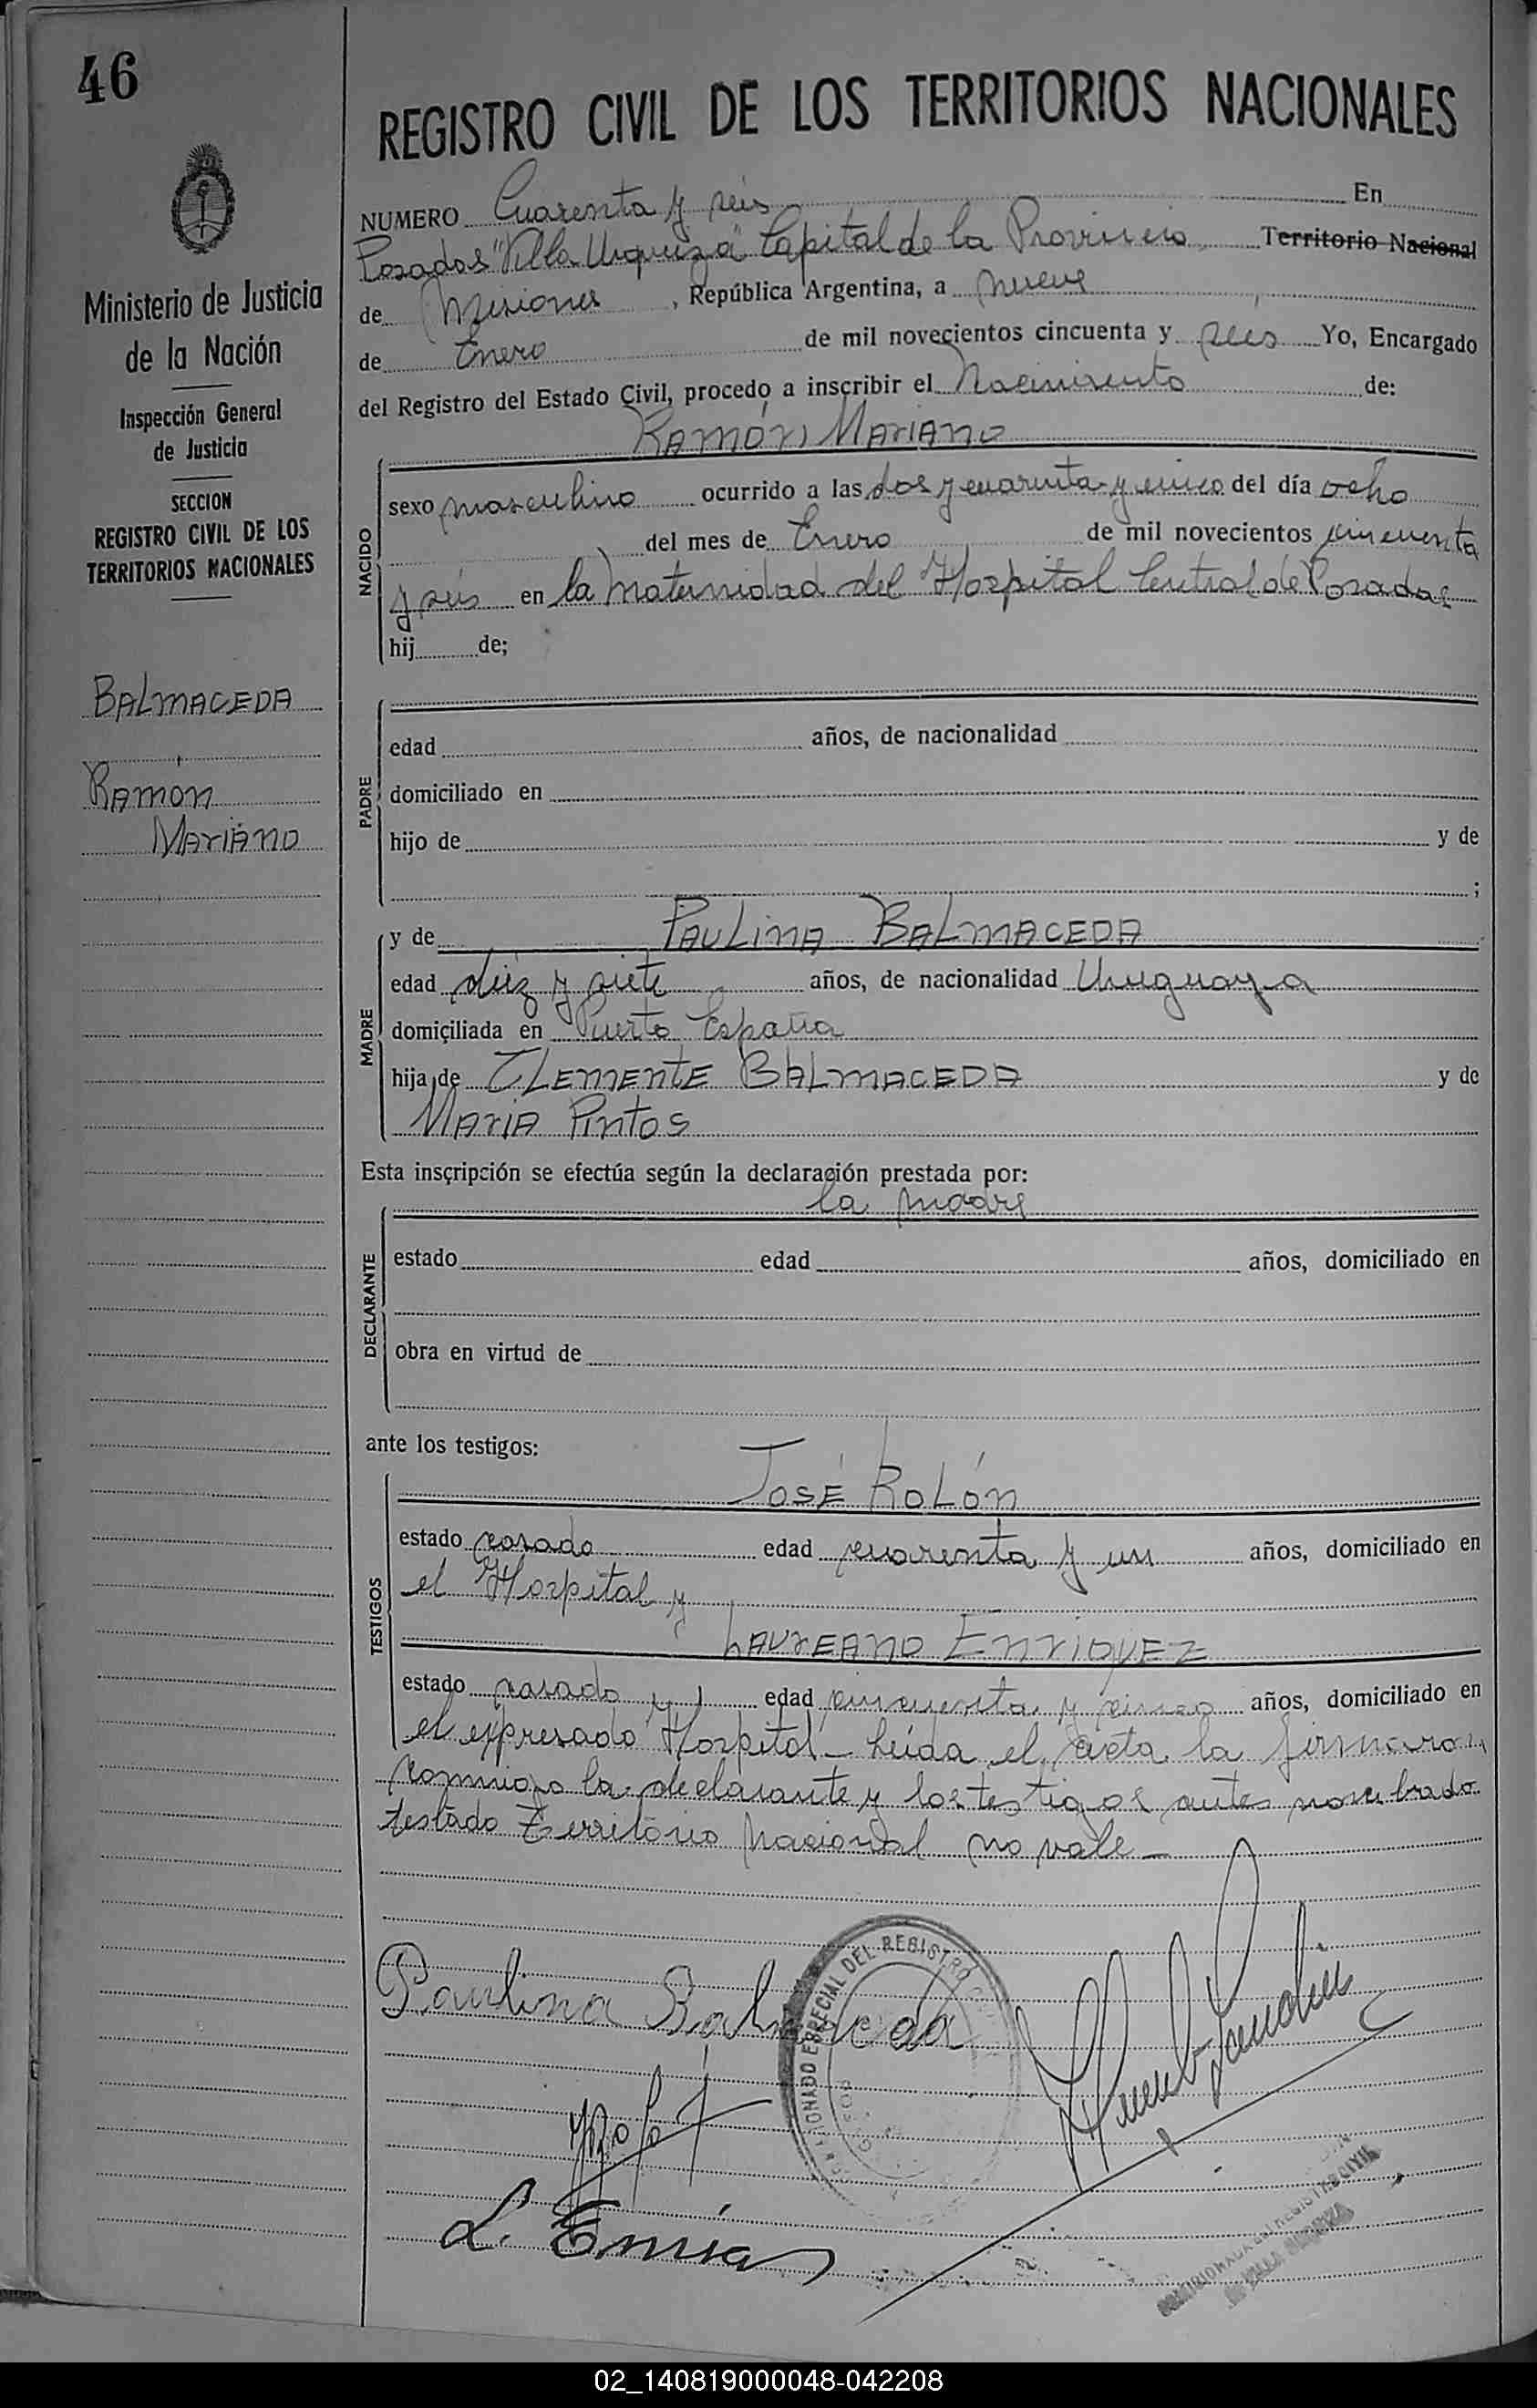 46
Ministerio de Justicia
de la Nación
Inspección General
de Justicia
SECCION
REGISTRO CIVIL DE LOS
TERRITORIOS NACIONALES
BALMACEDA
RAMÓN
MARIANO
REGISTRO CIVIL DE LOS TERRITORIOS NACIONALES
NUMERO Cuarenta y seis En
Posadas "Villa Urquiza" Capital de la Provincia Territorio Nacional
de Misiones, República Argentina, a nueve
de Enero de mil novecientos cincuenta y seis Yo, Encargado
del Registro del Estado Civil, procedo a inscribir el Nacimiento de:
RAMÓN MARIANO
NACIDO
sexo masculino ocurrido a las dos y cuarenta y cinco del día ocho
del mes de Enero de mil novecientos cincuenta
y seis en la Maternidad del Hospital Central de Posadas
hij de;
PADRE
edad años, de nacionalidad
domiciliado en
hijo de y de
;
MADRE
y de PAULINA BALMACEDA
edad diez y siete años, de nacionalidad Uruguaya
domiciliada en Puerto España
hija de CLEMENTE BALMACEDA y de
MARIA PINTOS
Esta inscripción se efectúa según la declaración prestada por:
la madre
DECLARANTE
estado edad años, domiciliado en
obra en virtud de
ante los testigos:
TESTIGOS
JOSÉ ROLÓN
estado casado edad cuarenta y un años, domiciliado en
el Hospital y
LAUREANO ENRIQUEZ
estado casado y edad cincuenta y cinco años, domiciliado en
el expresado Hospital - Leída el acta la firmaron
conmigo la declarante y los testigos antes nombrado
testado Territorio Nacional no vale -
Paulina Balmaceda
DEL REGISTRO
ESPECIAL
L.
02_140819000048-042208